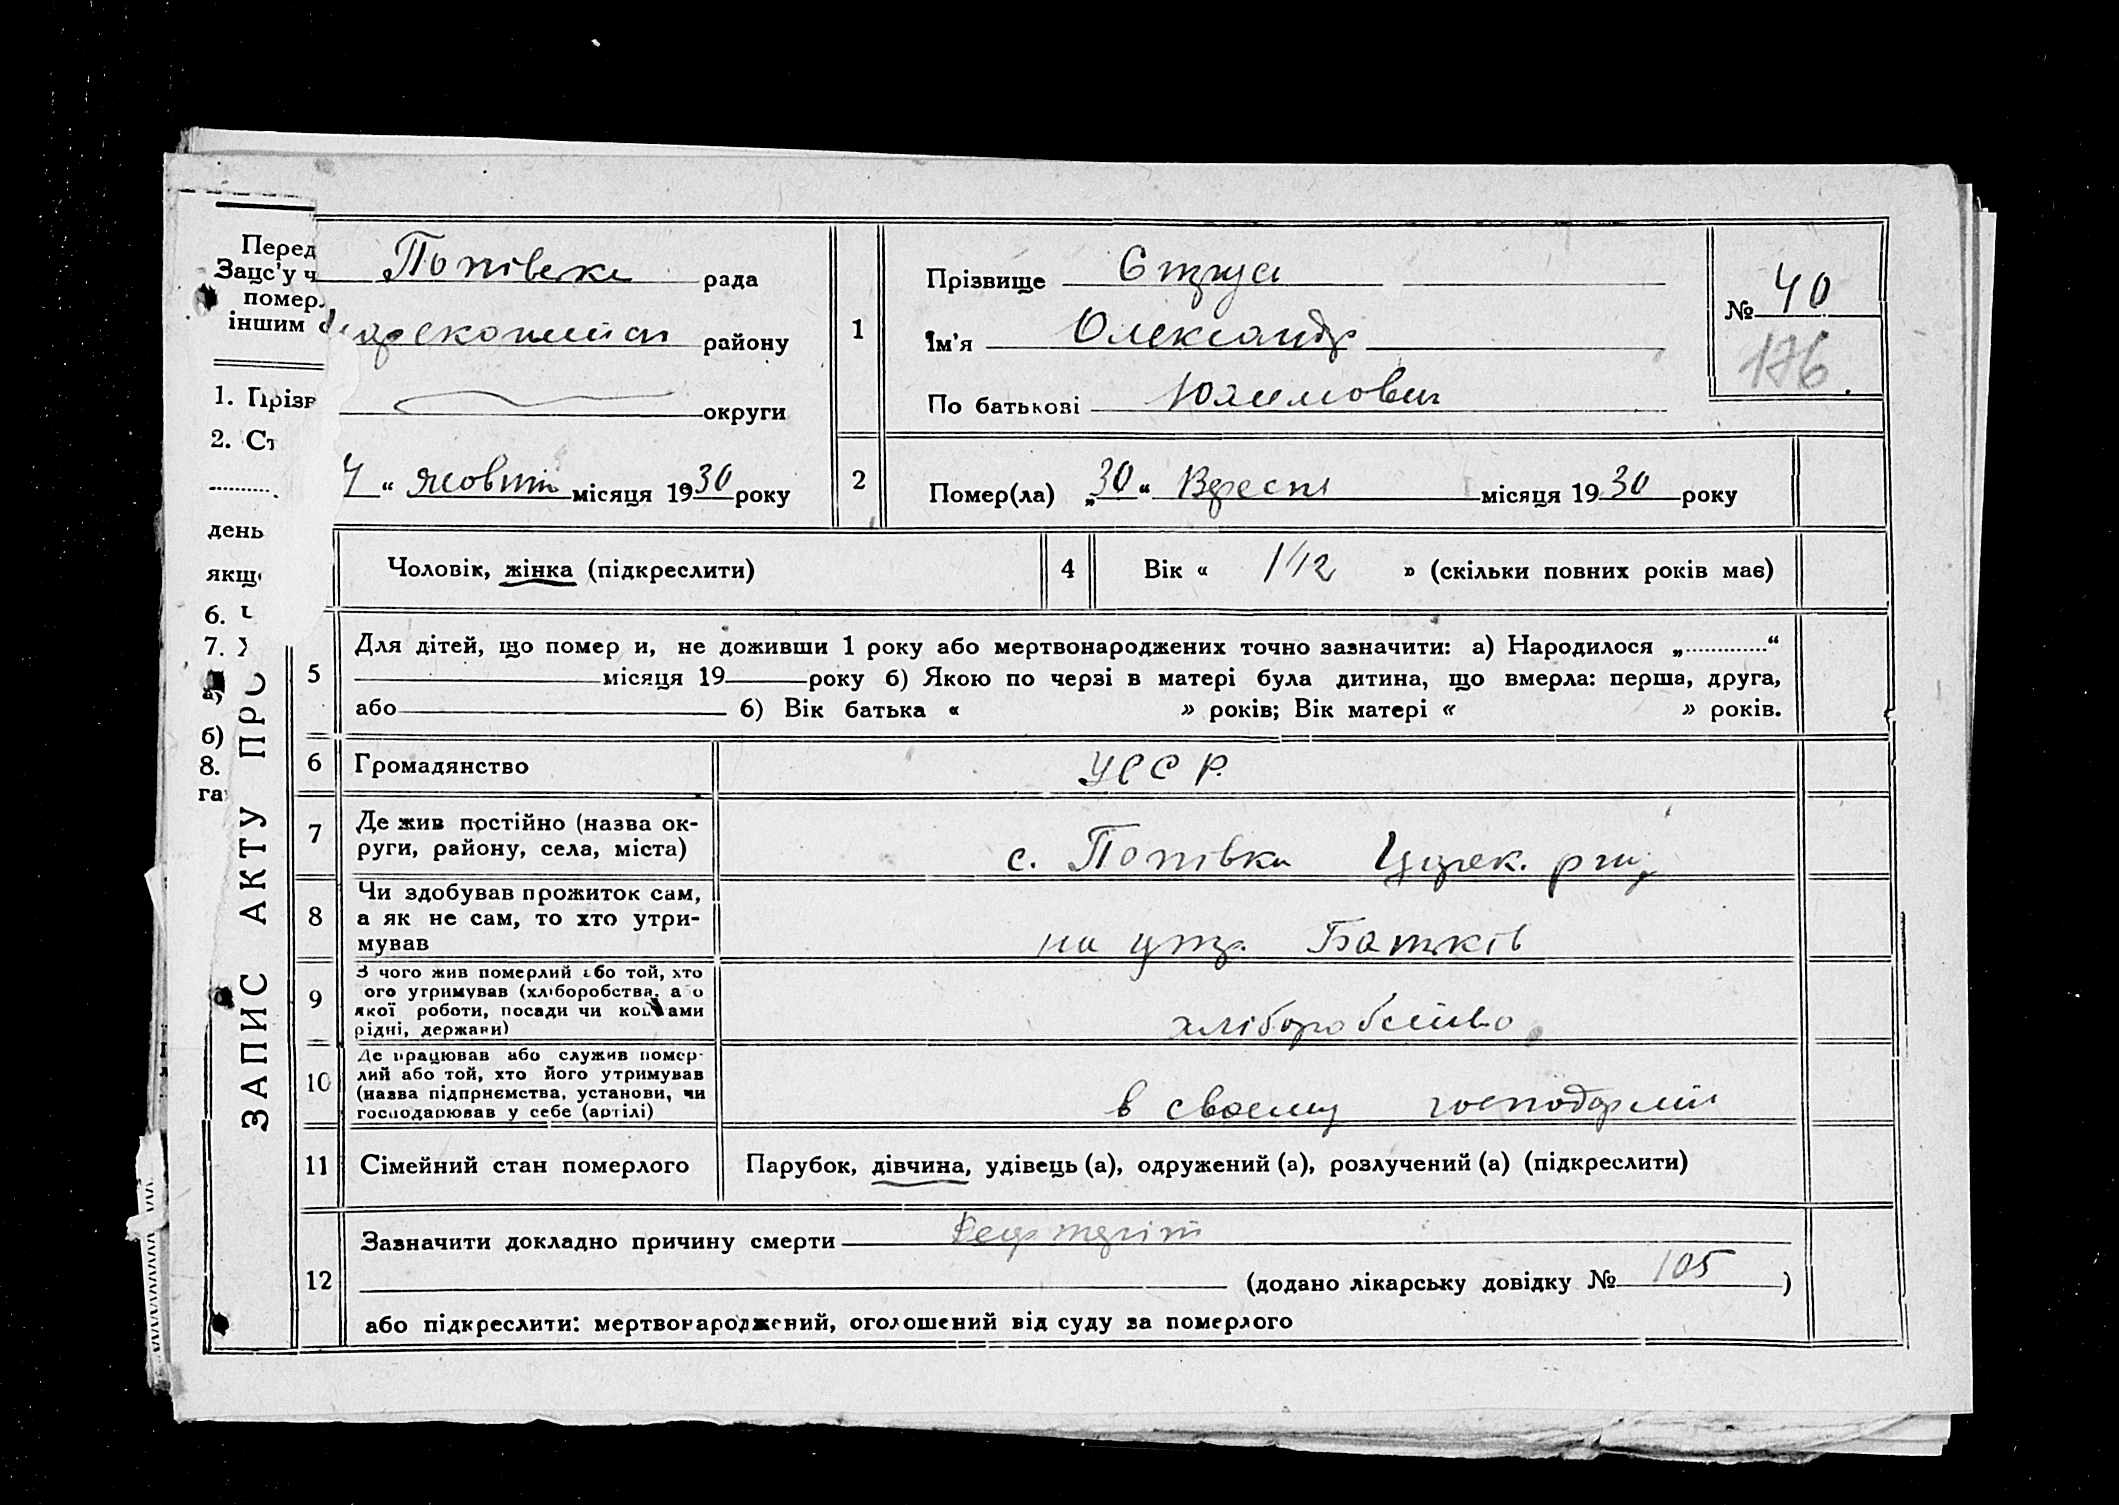 Попівська рада
району
округи
“ Жовтня місяця 1930 року
1
Прізвище
Ім'я Олександр
По батькові
№ 40
176
2
Помер(ла) „30“ Вересня місяця 1930 року
Перед
Зацс'у ч
помер.
іншим
1. Прізв
2. Ст
день
якщ
6. Ч
7.
а)
б)
8.
га
ЗАПИС АКТУ ПРО
Чоловік, жінка (підкреслити)
4
Вік « 1 1/2 » (скільки повних років має)
5
Для дітей, що помер и, не доживши 1 року або мертвонароджених точно зазначити: а) Народилося „.............“
місяця 19 року б) Якою по черзі в матері була дитина, що вмерла: перша, друга,
або б) Вік батька « » років; Вік матері « » років.
6
Громадянство
УРСР.
7
Де жив постійно (назва ок-
руги, району, села, міста)
с. Попівка
8
Чи здобував прожиток сам,
а як не сам, то хто утри-
мував
на утр. Батьків
9
З чого жив померлий або той, хто
ого утримував (хліборобства, а о
якої роботи, посади чи коштами
рідні, держави)
хліборобство
10
Де працював або служив помер-
лий або той, хто його утримував
(назва підприємства, установи, чи
господарював у себе (артілі)
в своєму господарстві
11
Сімейний стан померлого
Парубок, дівчина, удівець (а), одружений (а), розлучений (а) (підкреслити)
12
Зазначити докладно причину смерти
(додано лікарську довідку № 105)
або підкреслити: мертвонароджений, оголошений від суду за померлого